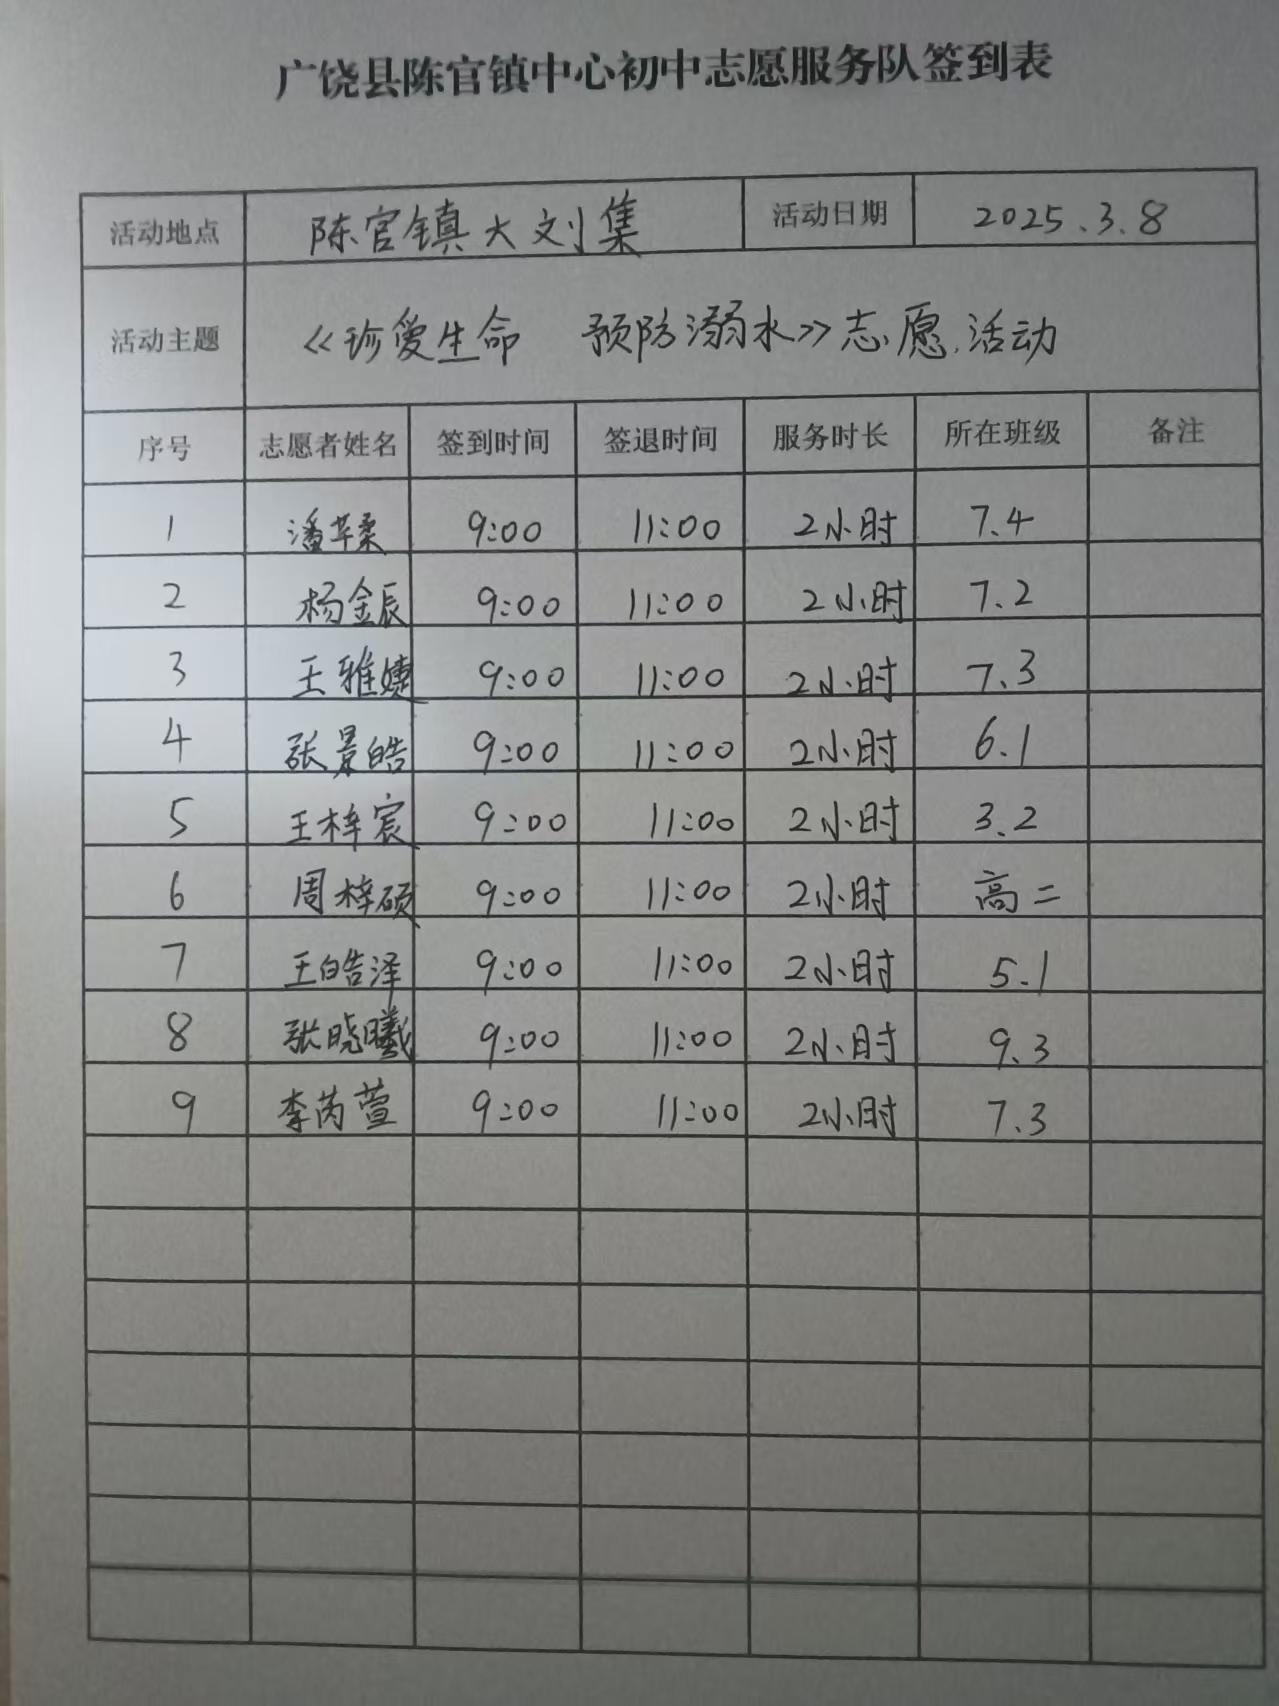 广饶县陈官镇中心初中志愿服务队签到表
活动地点 陈官镇大刘集 活动日期 2025.3.8
活动主题 《珍爱生命 预防溺水》志愿活动
序号 志愿者姓名 签到时间 签退时间 服务时长 所在班级 备注
1 潘芊柔 9:00 11:00 2小时 7.4
2 杨金辰 9:00 11:00 2小时 7.2
3 王雅婕 9:00 11:00 2小时 7.3
4 张景皓 9:00 11:00 2小时 6.1
5 王梓宸 9:00 11:00 2小时 3.2
6 周梓硕 9:00 11:00 2小时 高二
7 王皓泽 9:00 11:00 2小时 5.1
8 张晓曦 9:00 11:00 2小时 9.3
9 李芮萱 9:00 11:00 2小时 7.3